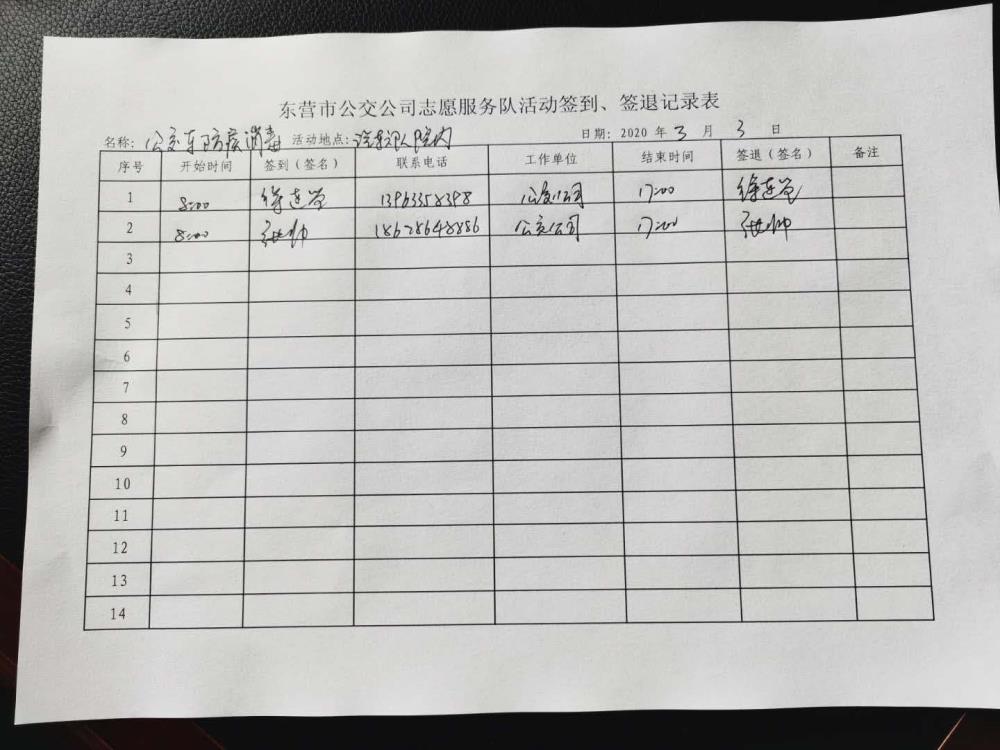 东营市公交公司志愿服务队活动签到、签退记录表
名称: 公交车防疫消毒 活动地点: 汽车队院内 日期: 2020 年 3 月 3 日
序号 开始时间 签到（签名） 联系电话 工作单位 结束时间 签退（签名） 备注
1 8:00 公交公司 17:00
2 8:00 张帅 18678648886 公交公司 17:00 张帅
3
4
5
6
7
8
9
10
11
12
13
14